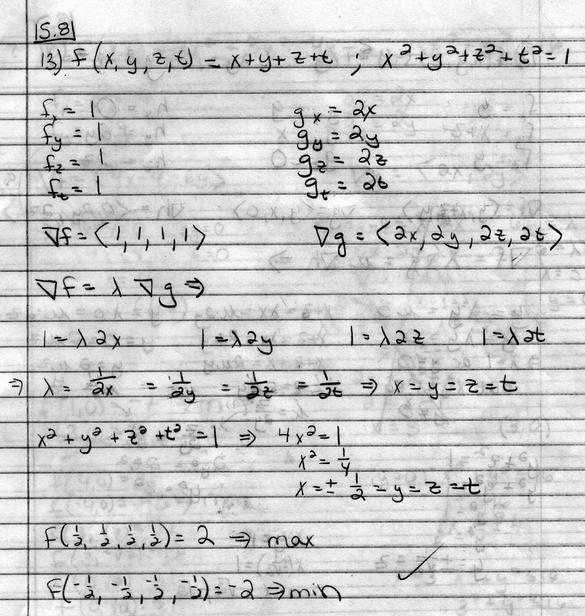 15.8
13) f(x, y, z, t) = x+y+z+t ; x²+y²+z²+t²=1
fₓ = 1    gₓ = 2x
f_y = 1    g_y = 2y
f_z = 1    g_z = 2z
f_t = 1    g_t = 2t
∇f = ⟨1, 1, 1, 1⟩    ∇g = ⟨2x, 2y, 2z, 2t⟩
∇f = λ ∇g ⇒
1 = λ2x    1 = λ2y    1 = λ2z    1 = λ2t
⇒ λ = 1/2x = 1/2y = 1/2z = 1/2t ⇒ x = y = z = t
x² + y² + z² + t² = 1 ⇒ 4x² = 1
x² = 1/4
x = ± 1/2 = y = z = t
f(1/2, 1/2, 1/2, 1/2) = 2 ⇒ max
f(-1/2, -1/2, -1/2, -1/2) = -2 ⇒ min ✓